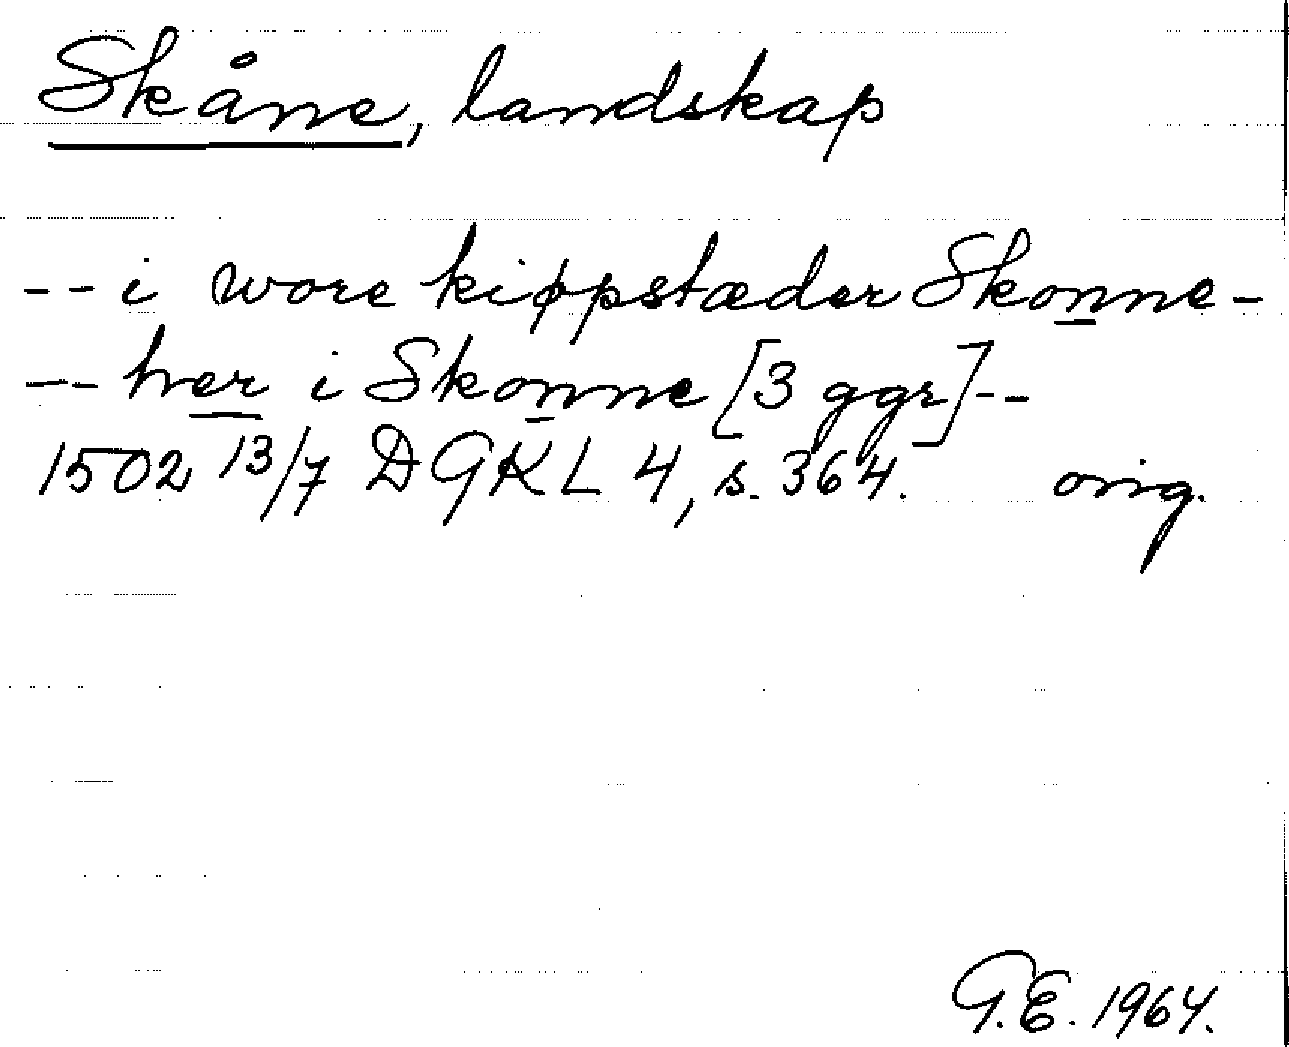 Skåne, landskap
-- i wore kiøpstæder Skonne -
-- hver i Skonne [3 ggr] --
1502 13/7 DGKL 4, s. 364. orig.
G.E. 1964.